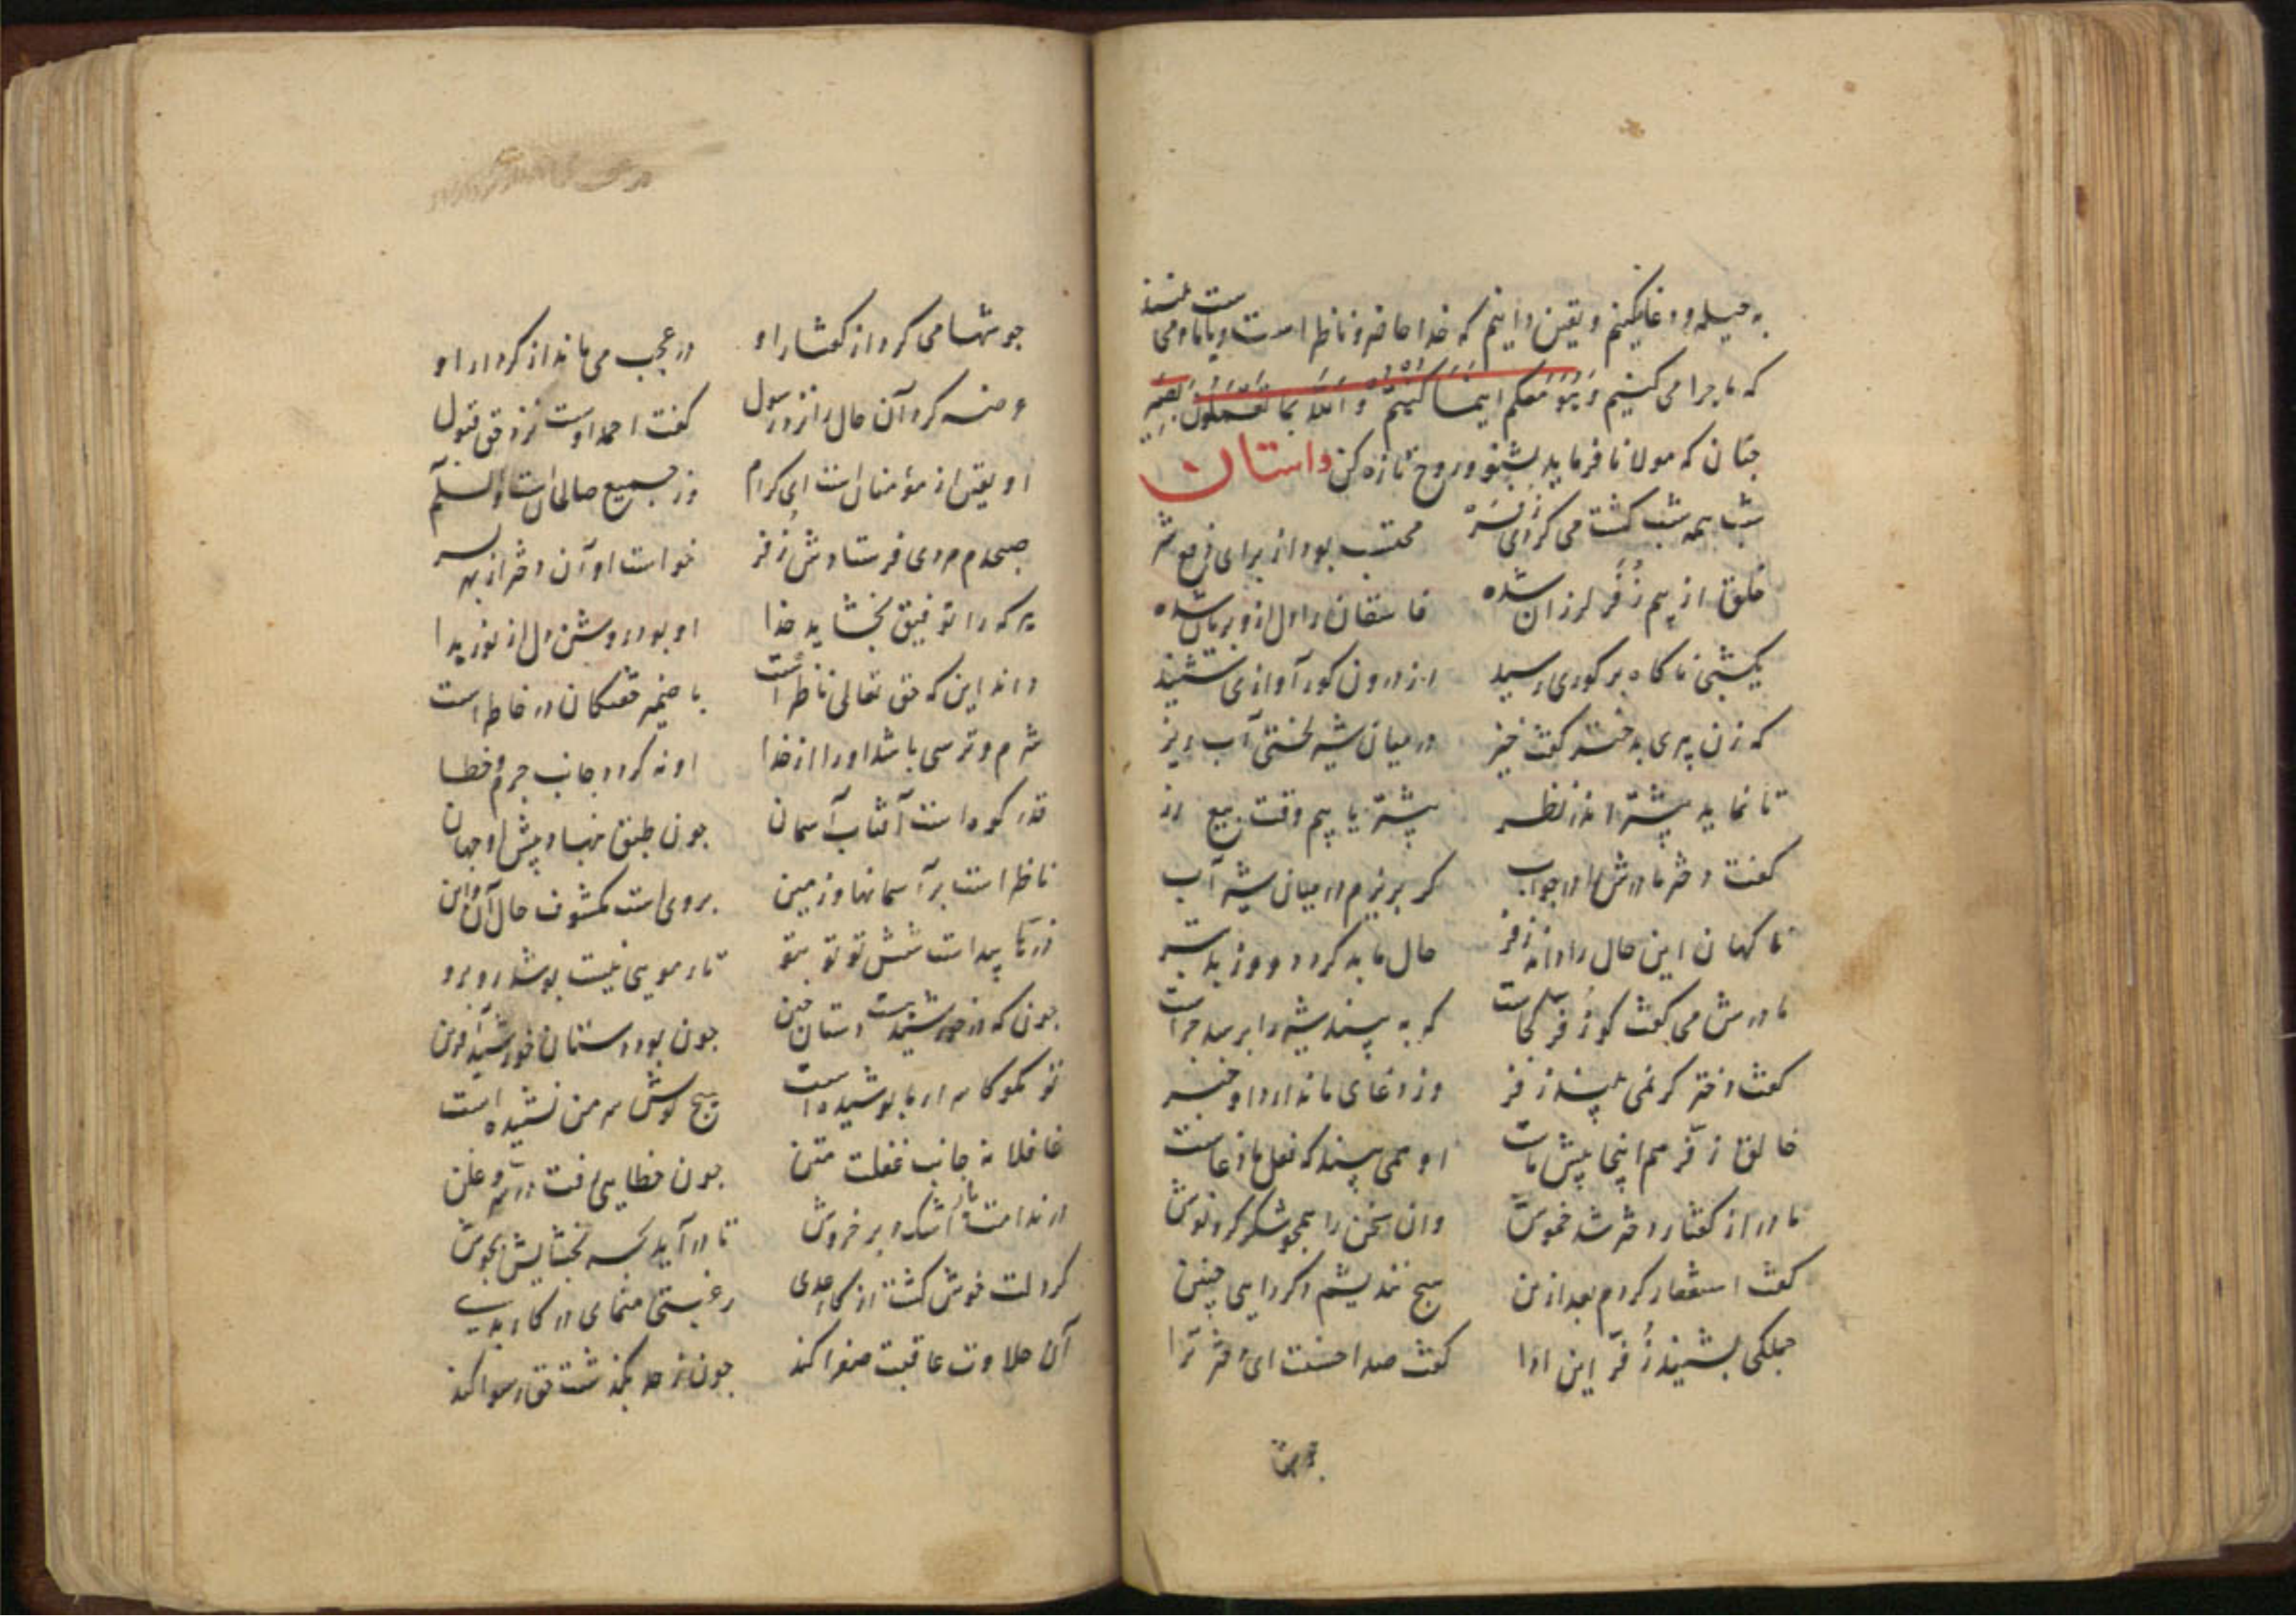 به حیله و دغا نکنیم و یقین دانیم که خدا حاضر و ناظر است و با ما می بیند
که ما چرا می کنیم وَهُوَ مَعَکُم اینَمَا کُنْتُم وَاللّه بِمَا تَعْمَلُونَ بَصِیر
چنان که مولانا فرماید بشنو و روح تازه کن داستان
شب همه شب کشت می کردی
محتسب بود از برای
خلق از بیم زُفَر لرزان شده
فاسقان را دل ازو بریان شده
یکشبی ناکاه بر کوری رسید
از درون کور آوازی شنید
که زن پیری به دختر کفت خیز
در میان شیر لختی آب ریز
تا نماید بیشتر اندر نظر
بیشتر یابیم وقت بیع زر
کفت دختر مادرش را در جواب
کر بریزم در میان شیر آب
ناکهان این حال را داند زفر
حال ما به کردد و روز بتر
مادرش می کفت کو زُفَر کجاست
که به بیند شیر را پرسد چراست
کفت دختر کر نمی بیند زفر
وز دغای ما ندارد او خبر
خالق زُفر هم اینجا پیش ماست
او همی بیند که فعل ما دغاست
مادر از کفتار دختر شد خموش
وان سخن را همچو شکر کرد نوش
کفت استغفار کردم بعد ازین
هیچ نندیشم دکر رایی چنین
جملکی بشنید زُفر این ادا
کفت صد احسنت ای دختر ترا
جوشها می کرد از کفتار او
در عجب می ماند از کردار او
عرضه کرد آن حال را نزد رسول
کفت احمد اوست نزد حق قبول
او یقین از مؤمنان است ای کرام
وز جمیع صالحان است والسلام
صبحدم مردی فرستادش زُفر
خواست او آن دختر از بهر پسر
هر که را توفیق بخشاید خدا
او بود روشن دل از نور هدا
داند این که حق تعالی ناظر است
با ضمیر خفتکان در خاطر است
شرم و ترسی باشد او را از خدا
او نه کردد جانب جرم و خطا
قدر کوه است آفتاب آسمان
چون طبق بنهاد پیش او جهان
ناظر است بر آسمانها و زمین
بروی است مکشوف حال آن و این
ذره‌ها پیداست شش تو تو بتو
تار مویی نیست پوشد رو برو
چون که در خورشید هست دستان چنین
چون بود دستان خورشید آفرین
تو مکو کاسرار ما پوشیده است
هیچ کوش سر من نشنیده است
غافلا نه جانب غفلت متن
چون خطایی رفت در سر و علن
در ندامت اشک و بر خروش
تا در آید بحر بخشایش بجوش
کر دلت خوش کشت از کار بدی
رغبتی منمای در کار بدی
آن حلاوت عاقبت صفرا کند
چون ز حد بکذشت حق رسوا کند